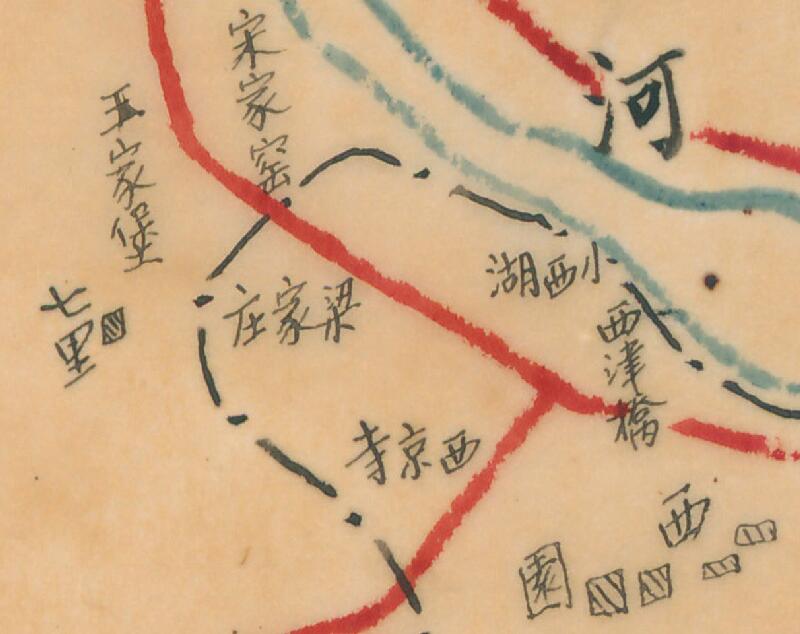 宋家窑
河
王家堡
七里
小西湖
梁家庄
西津橋
西京寺
西園